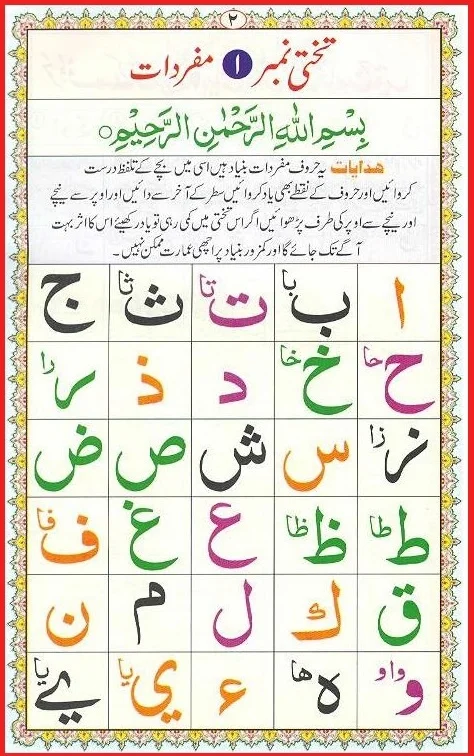 ۲
تختی نمبر ۱ مفردات
بِسْمِ اللهِ الرَّحْمٰنِ الرَّحِيْمِ ○
ھدایات یہ حروف مفردات بنیاد ہیں اسی میں بچے کے تلفظ درست
کروائیں اور حروف کے نقطے بھی یاد کروائیں سطر کے آخر سے دائیں اور اوپر سے نیچے
اور نیچے سے اوپر کی طرف پڑھوائیں اگر اس تختی میں کمی رہی تو یاد رکھیئے اس کا اثر بہت
آگے تک جائے گا اور کمزور بنیاد پر اچھی عمارت ممکن نہیں۔
ا ب با ت تا ث ثا ج
ح حا خ خا د ذ ر را
ز زا س ش ص ض
ط طا ظ ظا ع غ ف فا
ق ك ل م ن
و واو ه ها ء ي يا ے يا